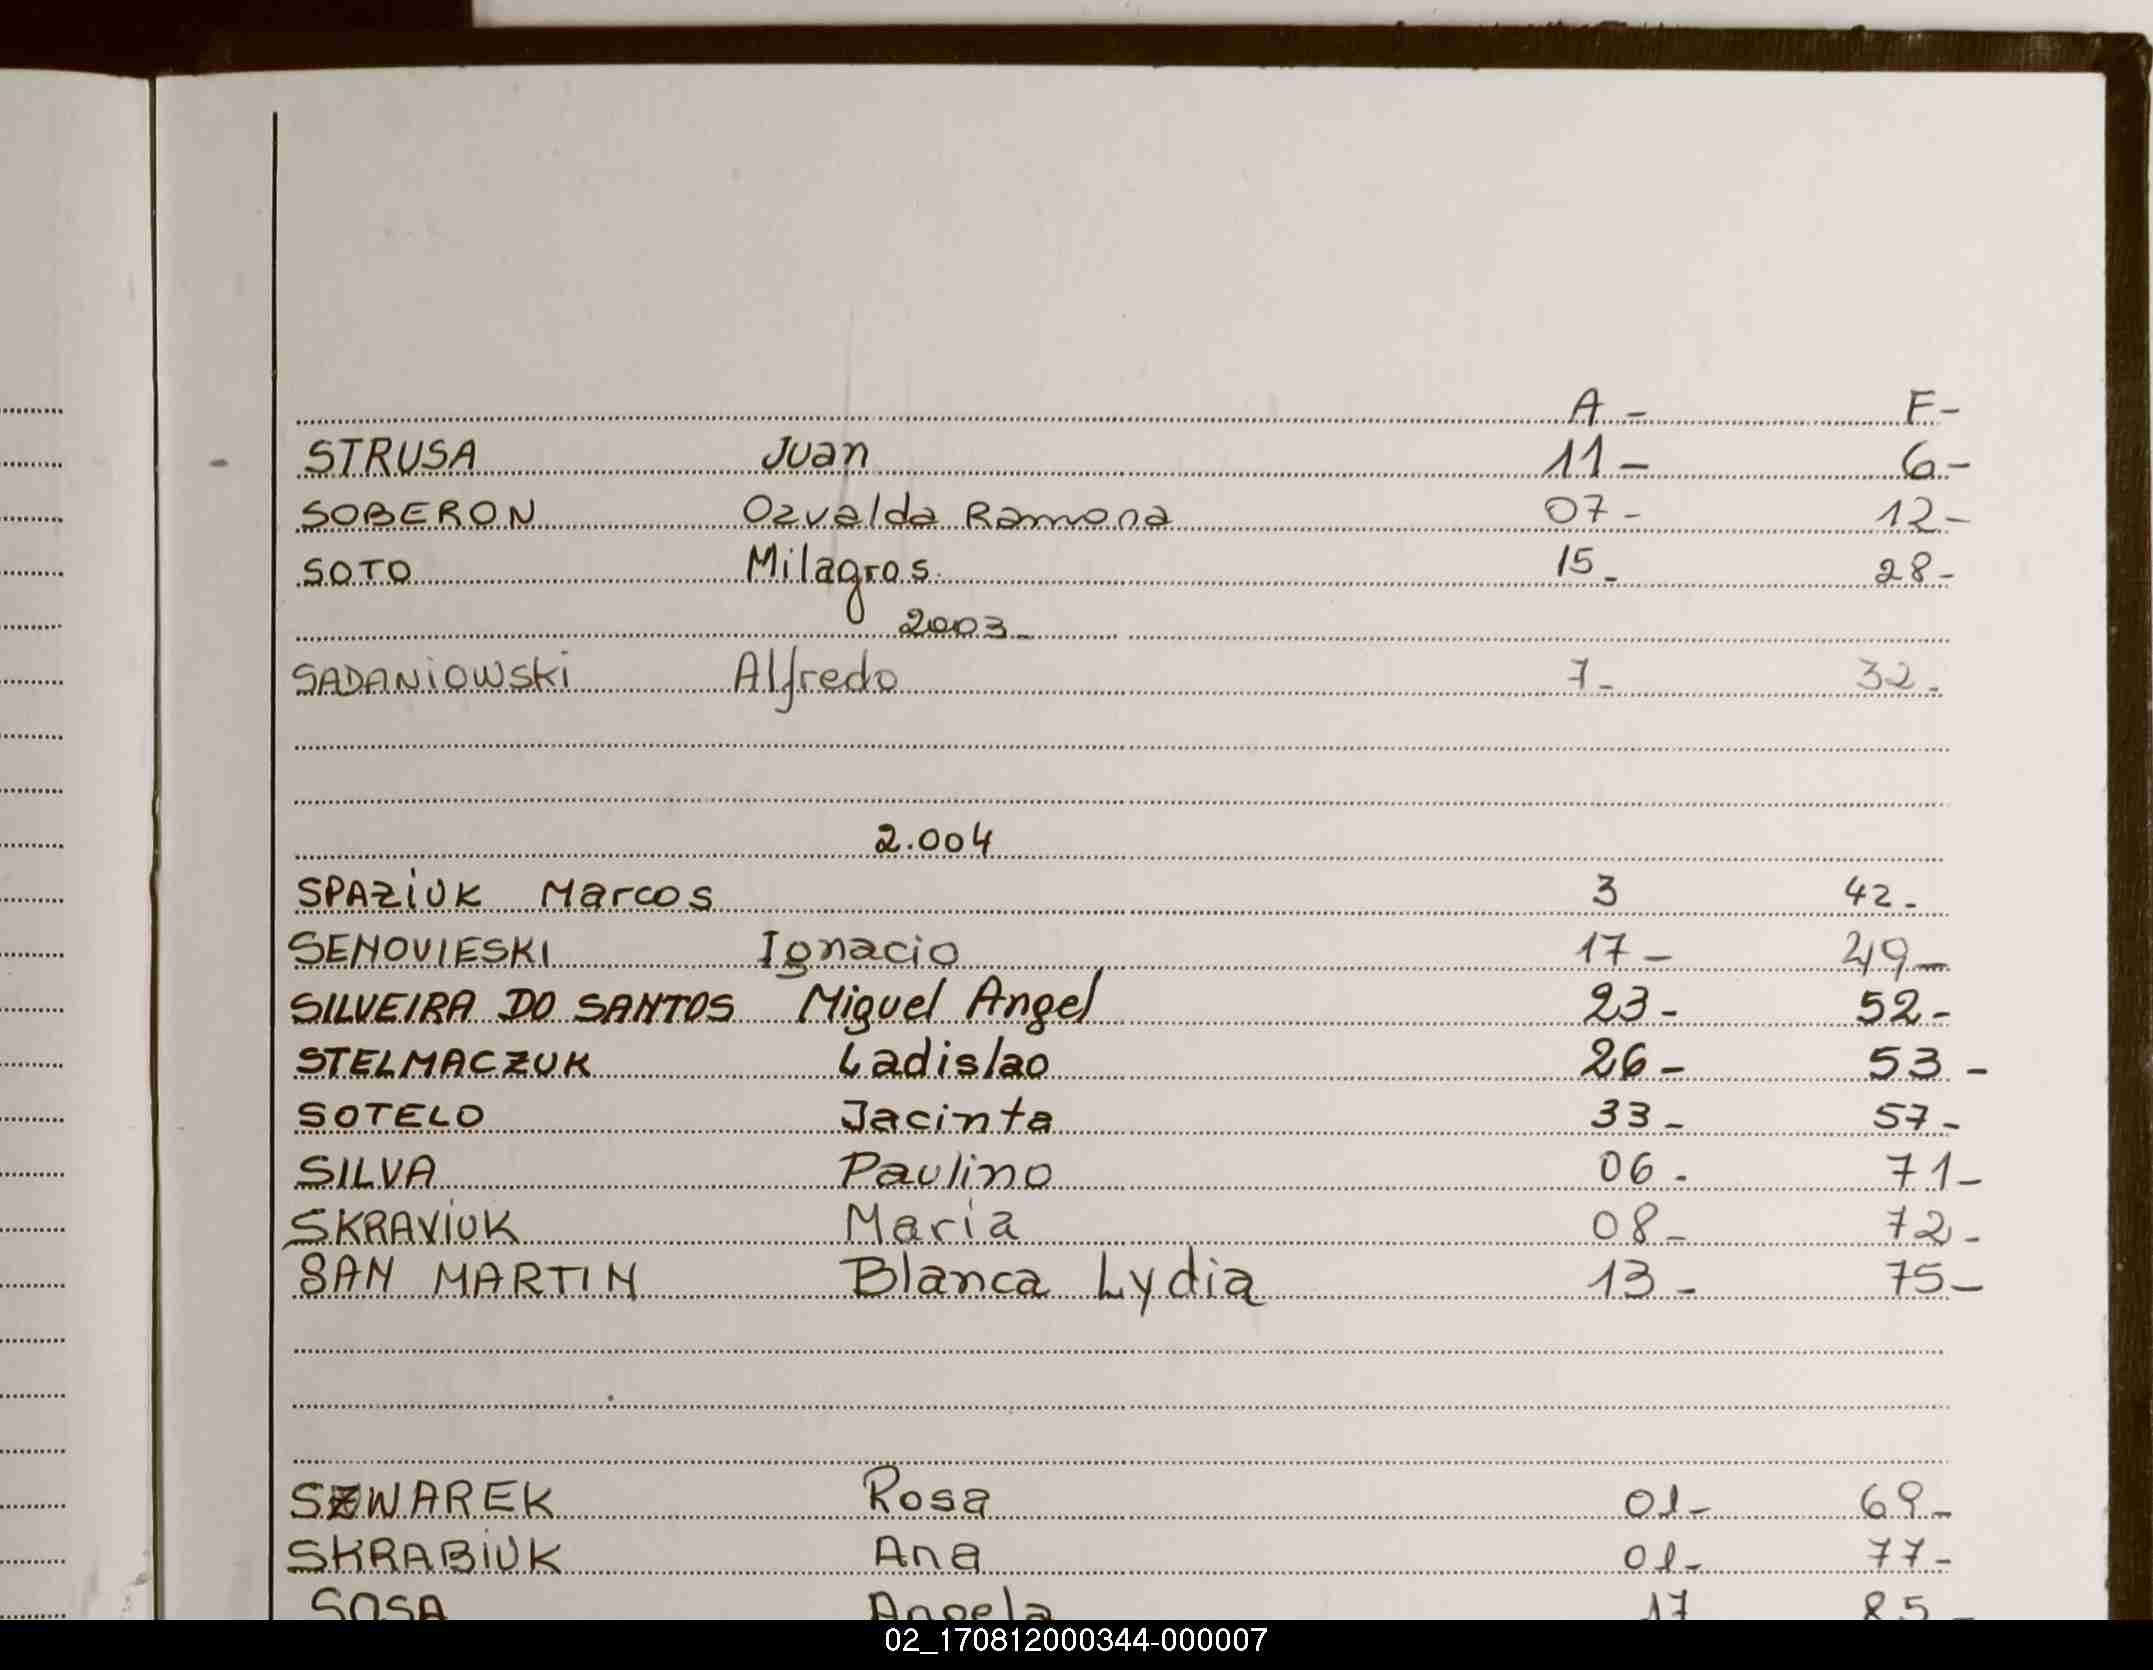 A - F-
STRUSA Juan 11- 6-
SOBERON Ozvalda Ramona 07- 12-
SOTO Milagros. 15- 28-
2003-
SADANiOWSki Alfredo 7- 32-
2.004
SPAZiUK Marcos 3 42-
SENOVIESKI Ignacio 17- 49-
SILVEIRA DO SANTOS Miguel Angel 23- 52-
STELMACZUK Ladislao 26- 53-
SOTELO Jacinta 33- 57-
SILVA Paulino 06- 71-
SKRAViUK Maria 08- 72-
SAN MARTIN Blanca Lydia 13- 75-
SZWAREK Rosa 01- 69-
SKRABiUK Ana 01- 77-
SOSA Angela 17 85-
02_170812000344-000007